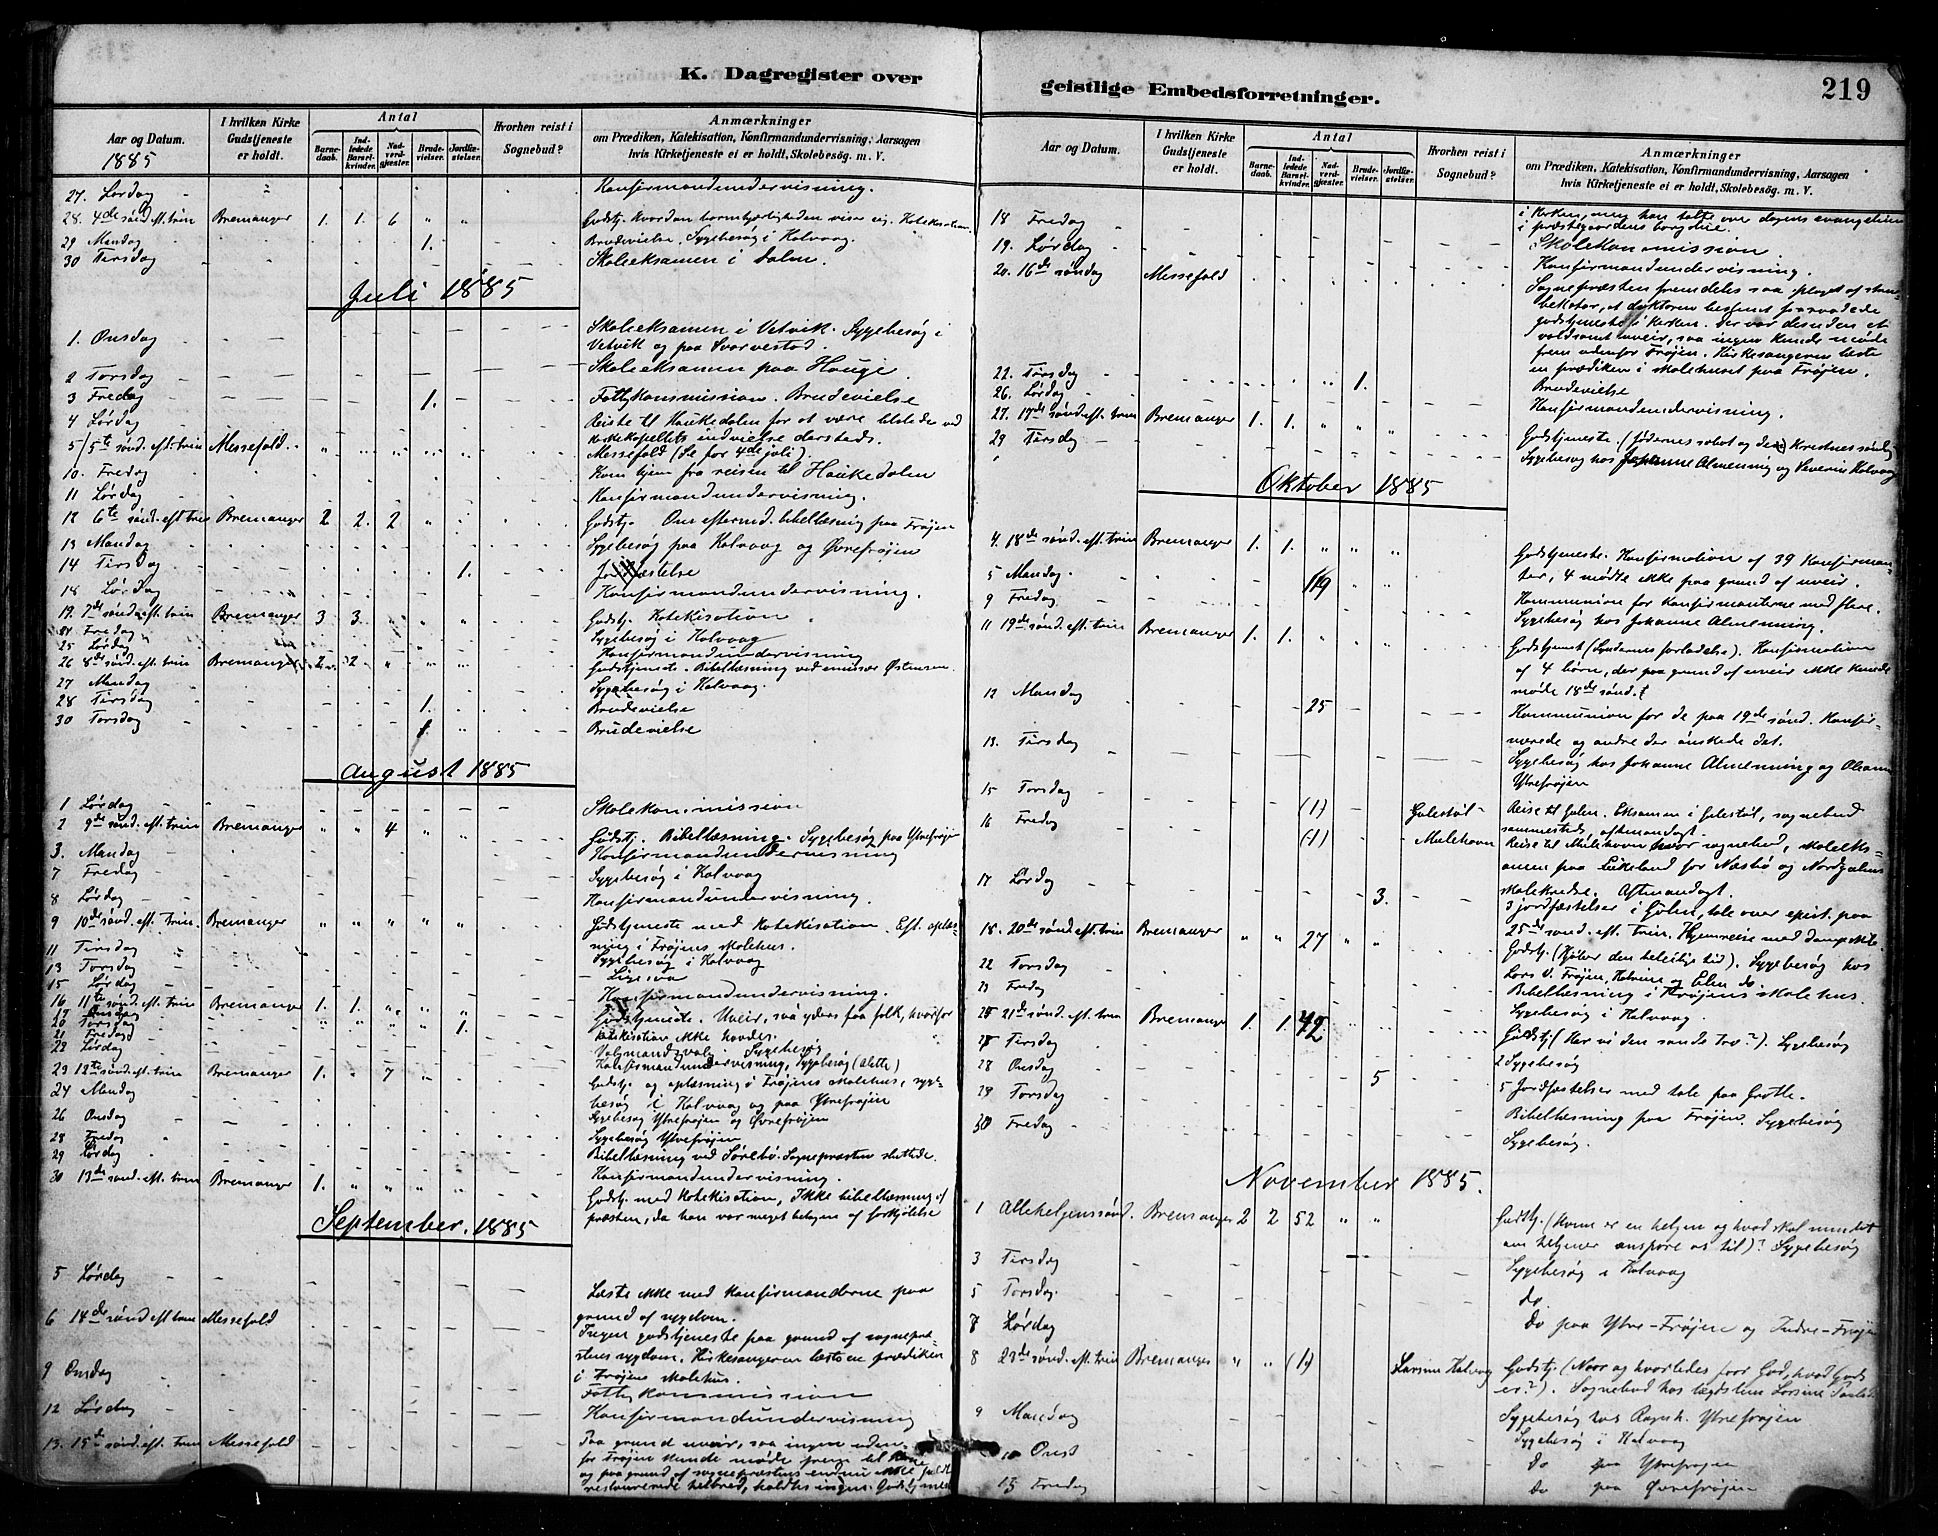 K. Dagregister over
Aar og Datum.
1885
I hvilken Kirke Gudstjeneste er holdt.
Antal
Barnedaab.
Indledede Barselkvinder.
Nadverdgjæster.
Brudevielser.
Jordfæstelser.
Hvorhen reist i Sognebud?
Anmærkninger
om Prædiken, Katekisation, Konfirmandundervisning, Aarsagen
hvis Kirketjeneste ei er holdt, Skolebesøg. m. V.
27. Lørdag Konfirmandundervisning.
28. 4de sønd. eft. trin Bremanger 1. 1. 6 " " Gudstj. Hvordan barmhjertigheden viser sig. Katekisation
29 Mandag 1. Brudevielse, Sygebesøg i Kalvaag.
30 Tirsdag Skoleeksamen i Dalen.
Juli 1885
1. Onsdag Skoleeksamen i Vetvik. Sygebesøg i
Vetvik og paa Svarvestad.
2 Torsdag Skoleeksamen paa Hauge.
3 Fredag 1. Fattigkommission. Brudevielse
4 Lørdag Reiste til Haukedalen for at være tilstede ved
kirkekapellets indvielse dersteds.
5/5te sønd. eft. trin Messefald. Messefald (Se for 4de juli).
10. Fredag Kom hjem fra reisen til Haukedalen
11 Lørdag Konfirmandundervisning.
12 6te sønd. eft. trin Bremanger 2 2. 2 " Gudstj. Om eftermd. bibellæsning paa Frøjen
13 Mandag Sygebesøg paa Kalvaag og Øvrefrøjen
14 Tirsdag 1. Jordfæstelse
18 Lørdag Konfirmandundervisning.
19. 7de sønd. eft. trin Bremanger 3 3. Gudstj. Katekisation
24 Fredag Sygebesøg i Kalvaag
25 Lørdag Konfirmandundervisning
26 8de sønd. eft. trin Bremanger 2 2 " Gudstjeneste. Bibellæsning ved missær Østensen
27 Mandag Sygebesøg i Kalvaag.
28 Tirsdag 1. Brudevielse
30 Torsdag 1. Brudevielse
August 1885
1 Lørdag Skolekommission
2 9de sønd. eft. trin Bremanger " " 4 " " Gudstj. Bibellæsning. Sygebesøg paa Ytrefrøjen
3. Mandag Konfirmandundervisning
7 Fredag Sygebesøg i Kalvaag
8 Lørdag Konfirmandundervisning.
9 10de sønd. eft. Trin. Bremanger " " " " " Gudstjeneste med Katekisation. Eft. oplæs-
ning i Frøjens skolehus.
11 Tirsdag Sygebesøg i Kalvaag
13 Torsdag Ligesaa
15 Lørdag Konfirmandundervisning.
16 11te sønd. eft. trin Bremanger 1. 1. Gudstjeneste. Uveir, saa yders faa folk, hvorfor
katekisation ikke havdes.
17
20 Torsdag 1. Valgmandsvalg Sygebesøg
21 Fredag
22 Lørdag Konfirmandundervisning, Sygebesøg
23 12te sønd. eft. trin Bremanger 1. " 7 Gudstj. og oplæsning i Frøjens skolehus, syge-
24 Mandag besøg i Kalvaag og paa Ytrefrøjen
26 Onsdag Sygebesøg Ytrefrøjen og Øvrefrøjen
28 Fredag Sygebesøg Ytrefrøjen
29 Lørdag Bibellæsning ved Sørebø. Sognepræsten sluttede.
Konfirmandundervisning.
30 13de sønd. eft. trin Bremanger 1. " " " " Gudstj. med Katekisation, Ikke bibellæsning af
præsten, da han var meget betagen af forkjølelse
September. 1885
5 Lørdag Læste ikke med konfirmanderne paa
grund af sygdom.
6 14de sønd eft trin Messefald Ingen gudstjeneste paa grund af sognepræ-
stens sygdom. Kirkesangeren læste en prædiken
i Frøjens skolehus.
9 Onsdag Fattigkommission
12 Lørdag Konfirmandundervisning
13. 15de sønd. eft. trin Messefald Paa grund uveir, saa ingen uden-
for Frøjen kunde møde frem til
og paa grund af sognepræstens endnu ikke fuldt
restaurerede helbred, holdtes ingen Gudstjeneste
geistlige Embedsforretninger.
219
Aar og Datum.
I hvilken Kirke Gudstjeneste er holdt.
Antal
Barnedaab.
Indledede Barselkvinder.
Nadverdgjæster.
Brudevielser.
Jordfæstelser.
Hvorhen reist i Sognebud?
Anmærkninger
om Prædiken, Katekisation, Konfirmandundervisning, Aarsagen
hvis Kirketjeneste ei er holdt, Skolebesøg. m. V.
i kirken, men han talte over dagens evangelium
i præstegaardens borgstue.
18 Fredag Skolekommission
19. Lørdag Konfirmandundervisning.
20. 16de søndag Messefald Sognepræsten fremdeles saa plaget af
at doktoren bestemt fraraadede
gudstjeneste i kirken. Der var desuden et
voldsomt uveir, saa ingen kunde møde
frem udenfor Frøjen. Kirkesangeren læste
en prædiken i skolehuset paa Frøjen.
22. Tirsdag 1. Brudevielse
26. Lørdag Konfirmandundervisning.
27. 17de sønd. eft. trin Bremanger 1. 1. " " " Gudstjeneste. (Jødernes sabat og de Kristnes søndag
29 Tirsdag Sygebesøg hos Johanne Almenning og Severin Kalvaag
Oktober 1885
4. 18de sønd. eft. trin Bremanger 1. 1. " " " Gudstjeneste. Konfirmation af 39 konfirman-
ter, 4 mødte ikke paa grund af uveir.
5 Mandag. 119 Kommunion for konfirmanterne med flere.
9 Fredag Sygebesøg hos Johanne Almenning.
11 19de sønd. eft. trin Bremanger 1. 1. Gudstjenest (Syndernes forladelse). Konfirmation
af 4 børn, der paa grund af uveir ikke kunde
møde 18de sønd.
12 Mandag 25 Kommunion for de paa 19de sønd. konfir-
merede og andre der ønskede det.
13. Tirsdag Sygebesøg hos Johanne Almenning og Oleanna
Ytrefrøjen
15 Torsdag (1) Gulestøl Reise til Gulen. Eksamen i Gulestøl, sognebud
sammesteds, aftenandagt.
16 Fredag (1) Mulehavn Reise til Mulehavn hvor sognebud, skoleeks-
amen paa Lukeland for Næsbø og Nordgulens
skolekredse. Aftenandagt.
17 Lørdag 3. 3 jordfæstelser i Gulen, tale over epist. paa
25de sønd. eft. Trin. Hjemreise med dampskib.
18. 20de sønd. eft. trin Bremanger " " 27 " " Gudstj. (Kjøber den beleilige tid). Sygebesøg hos
Lars Y. Frøjen, og Elen do
22 Torsdag Bibellæsning i Frøjens skolehus.
23 Fredag Sygebesøg i Kalvaag.
25 21de sønd. eft. trin Bremanger 1. 1. 42 Gudstj. (Har vi den sande tro?). Sygebesøg
27 Tirsdag 2 Sygebesøg
28 Onsdag 5 5 Jordfæstelser med tale paa Grotle.
29 Torsdag Bibellæsning paa Frøjen. Sygebesøg
30 Fredag Sygebesøg.
November 1885.
1 Allehelgenssønd. Bremanger 2 2 52 " " Gudstj. (Hvem er en helgen og hvad skal mindet
om helgener anspore os til)? Sygebesøg
3 Tirsdag Sygebesøg i Kalvaag
5 Torsdag. do
7 Lørdag Do paa Ytre-Frøjen og Indre-Frøjen
8 23de sønd. eft. trin Bremanger " " (1) Larsine Kalvaag Gudstj. (Naar og hvorledes give Gud, hvad Guds
er?). Sognebud hos lægdslem Larsine
9 Mandag Sygebesøg hos Ragnh. Ytrefrøjen
Sygebesøg i Kalvaag
10 Onsd do paa Ytrefrøjen
13 Fredag do paa Øvrefrøjen